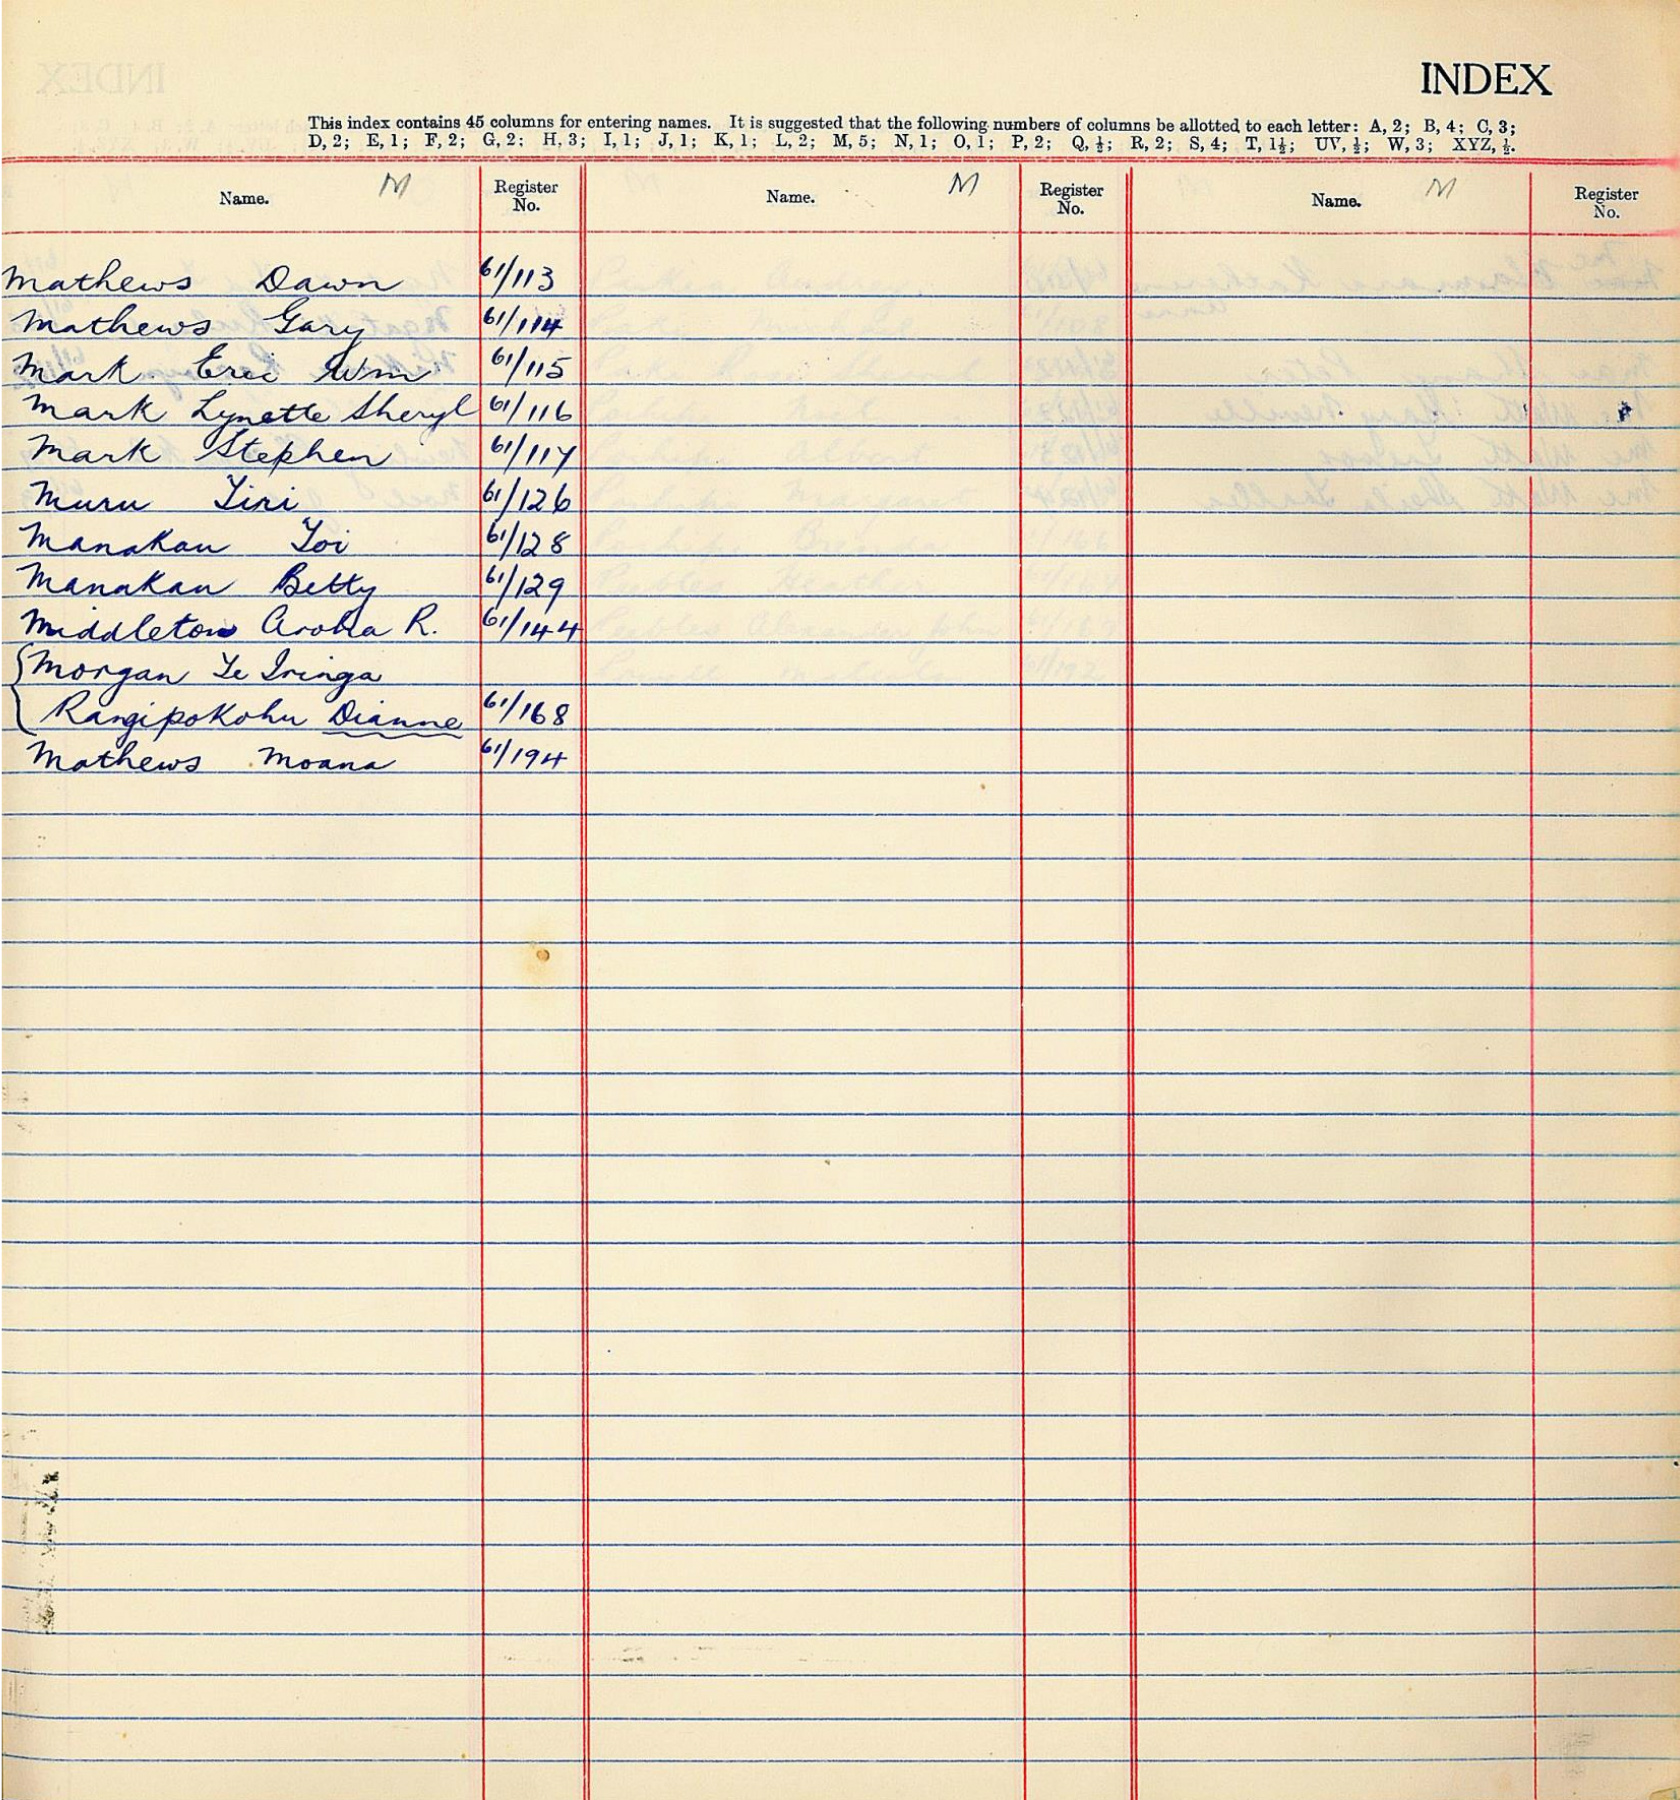 INDEX
This index contains 45 columns for entering names. It is suggested that the following numbers of columns be allotted to each letter: A, 2; B, 4; C, 3;
D, 2; E, 1; F, 2; G, 2; H, 3; I, 1; J, 1; K, 1; L, 2; M, 5; N, 1; O, 1; P, 2; Q, ½; R, 2; S, 4; T, 1½; UV, ½; W, 3; XYZ, ½.
Name. M Register No. Name. M Register No. Name. M Register No.
Mathews Dawn 61/113
Mathews Gary 61/114
Mark Eric Wm 61/115
Mark Lynette Sheryl 61/116
Mark Stephen 61/117
Muru Tiri 61/126
Manakau Toi 61/128
Manakau Betty 61/129
Middleton Aroha R. 61/144
Morgan Te Iringa
Rangipokohu Dianne 61/168
Mathews Moana 61/194